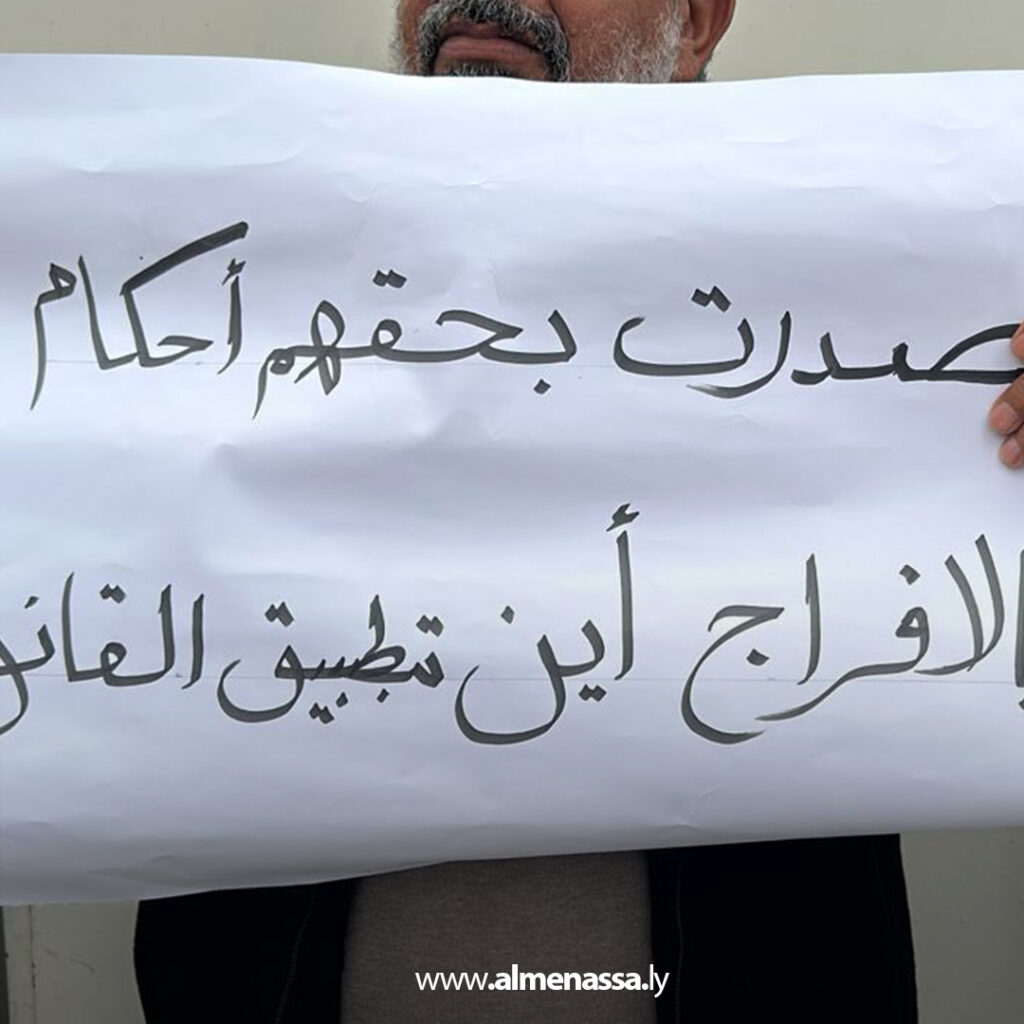 صدرت بحقهم أحكام
بالافراج أين تطبيق
www.almenassa.ly